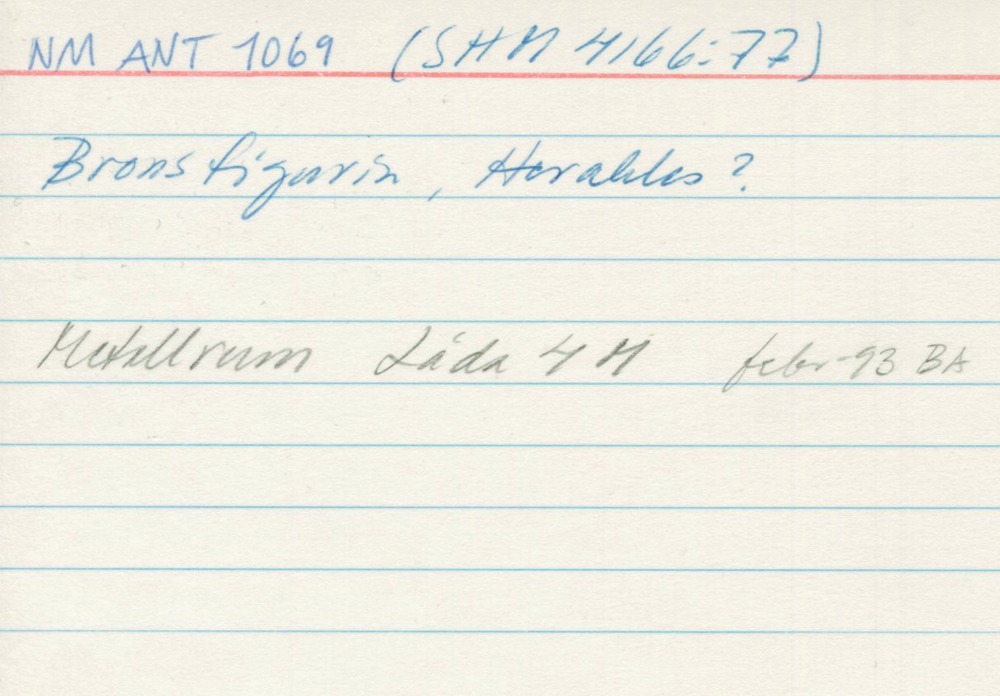 NM ANT 1069 (SHM 4166:77)
Bronsfigurin, Herakles?
Metallrum Låda 4 M febr-93 BA